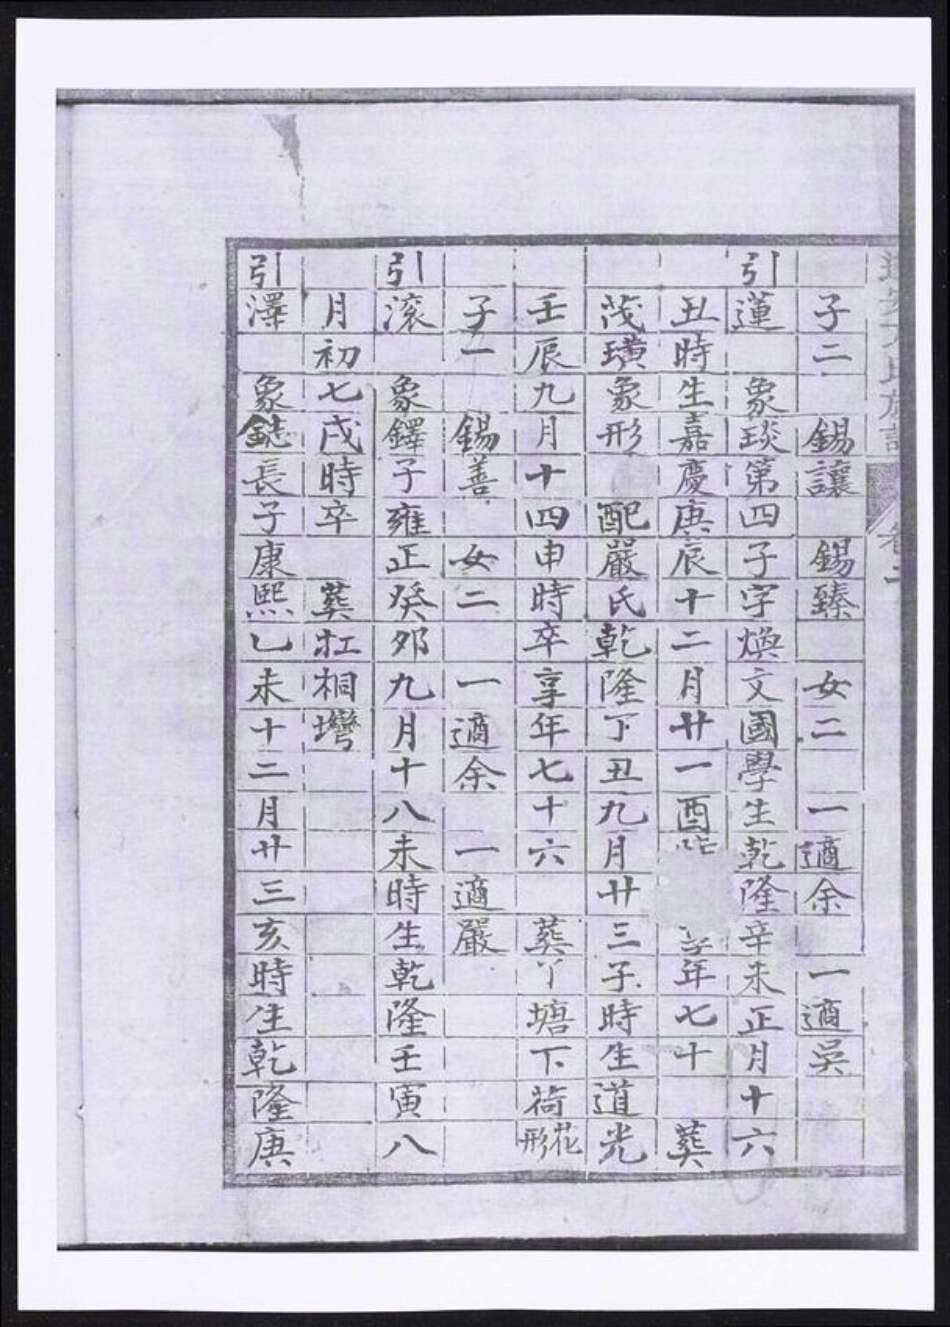 子二 錫讓 錫臻 女二 一適余 一適吳
引蓮 象琰第四子字煥文國學生乾隆辛未正月十六
丑時生嘉慶庚辰十二月廿一酉 年七十 葬
茂璜象形 配嚴氏乾隆丁丑九月廿三子時生道光
壬辰九月十四申時卒享年七十六 葬丫塘下荷花形
子一 錫善 女二 一適余 一適嚴
引滾 象鐸子雍正癸卯九月十八未時生乾隆壬寅八
月初七戌時卒 葬杠桐灣
引澤 象鋕長子康熙乙未十二月廿三亥時生乾隆庚